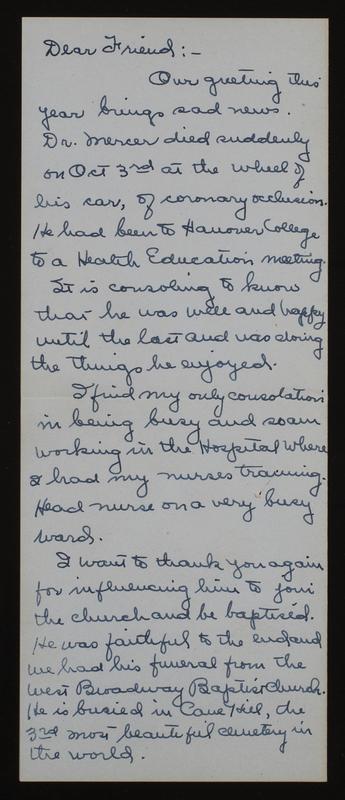 Dear Friend:-
Our greeting this
year brings sad news.
Dr. Mercer died suddenly
on Oct 3rd at the wheel of
his car, of coronary occlusion.
He had been to Hanover College
to a Health Education meeting.
It is consoling to know
that he was well and happy
until the last and was doing
the things he enjoyed.
I find my only consolation
in being busy and so am
working in the Hospital where
I had my nurses training.
Head nurse on a very busy
ward.
I want to thank you again
for influencing him to join
the church and be baptised.
He was faithful to the end and
we had his funeral from the
West Broadway Baptist Church.
He is buried in Cave Hill, the
3rd most beautiful cemetery in
the world.